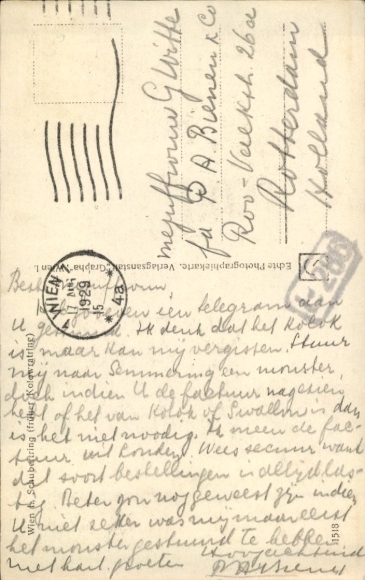 Mejuffrouw G Witte
fa P. A. Bienen & Co
Roo-Valkstr. 26a
Rotterdam
Holland
Echte Photographiekarte, Verlagsanstalt "Grapha" Wien I.
Wien I. Schubertring (früher Kolowratring)
11518
WIEN
1929
15
4a
Beste Juffrouw
een telegram aan
U Ik denk dat het Kolok
is, maar kan mij vergissen. Stuur
mij naar Semmering een monster,
doch indien U de factuur nagezien
heeft of het van Kolok of Swallow is dan
is het niet noodig. Ik meen de fac-
tuur uit Londen. Wees secuur want
dat soort bestellingen is altijd las-
tig. Beter zou nog geweest zijn indien
U niet zeker was mij maar eerst
het monster gestuurd te hebben
Hoogachtend
met hart. groeten